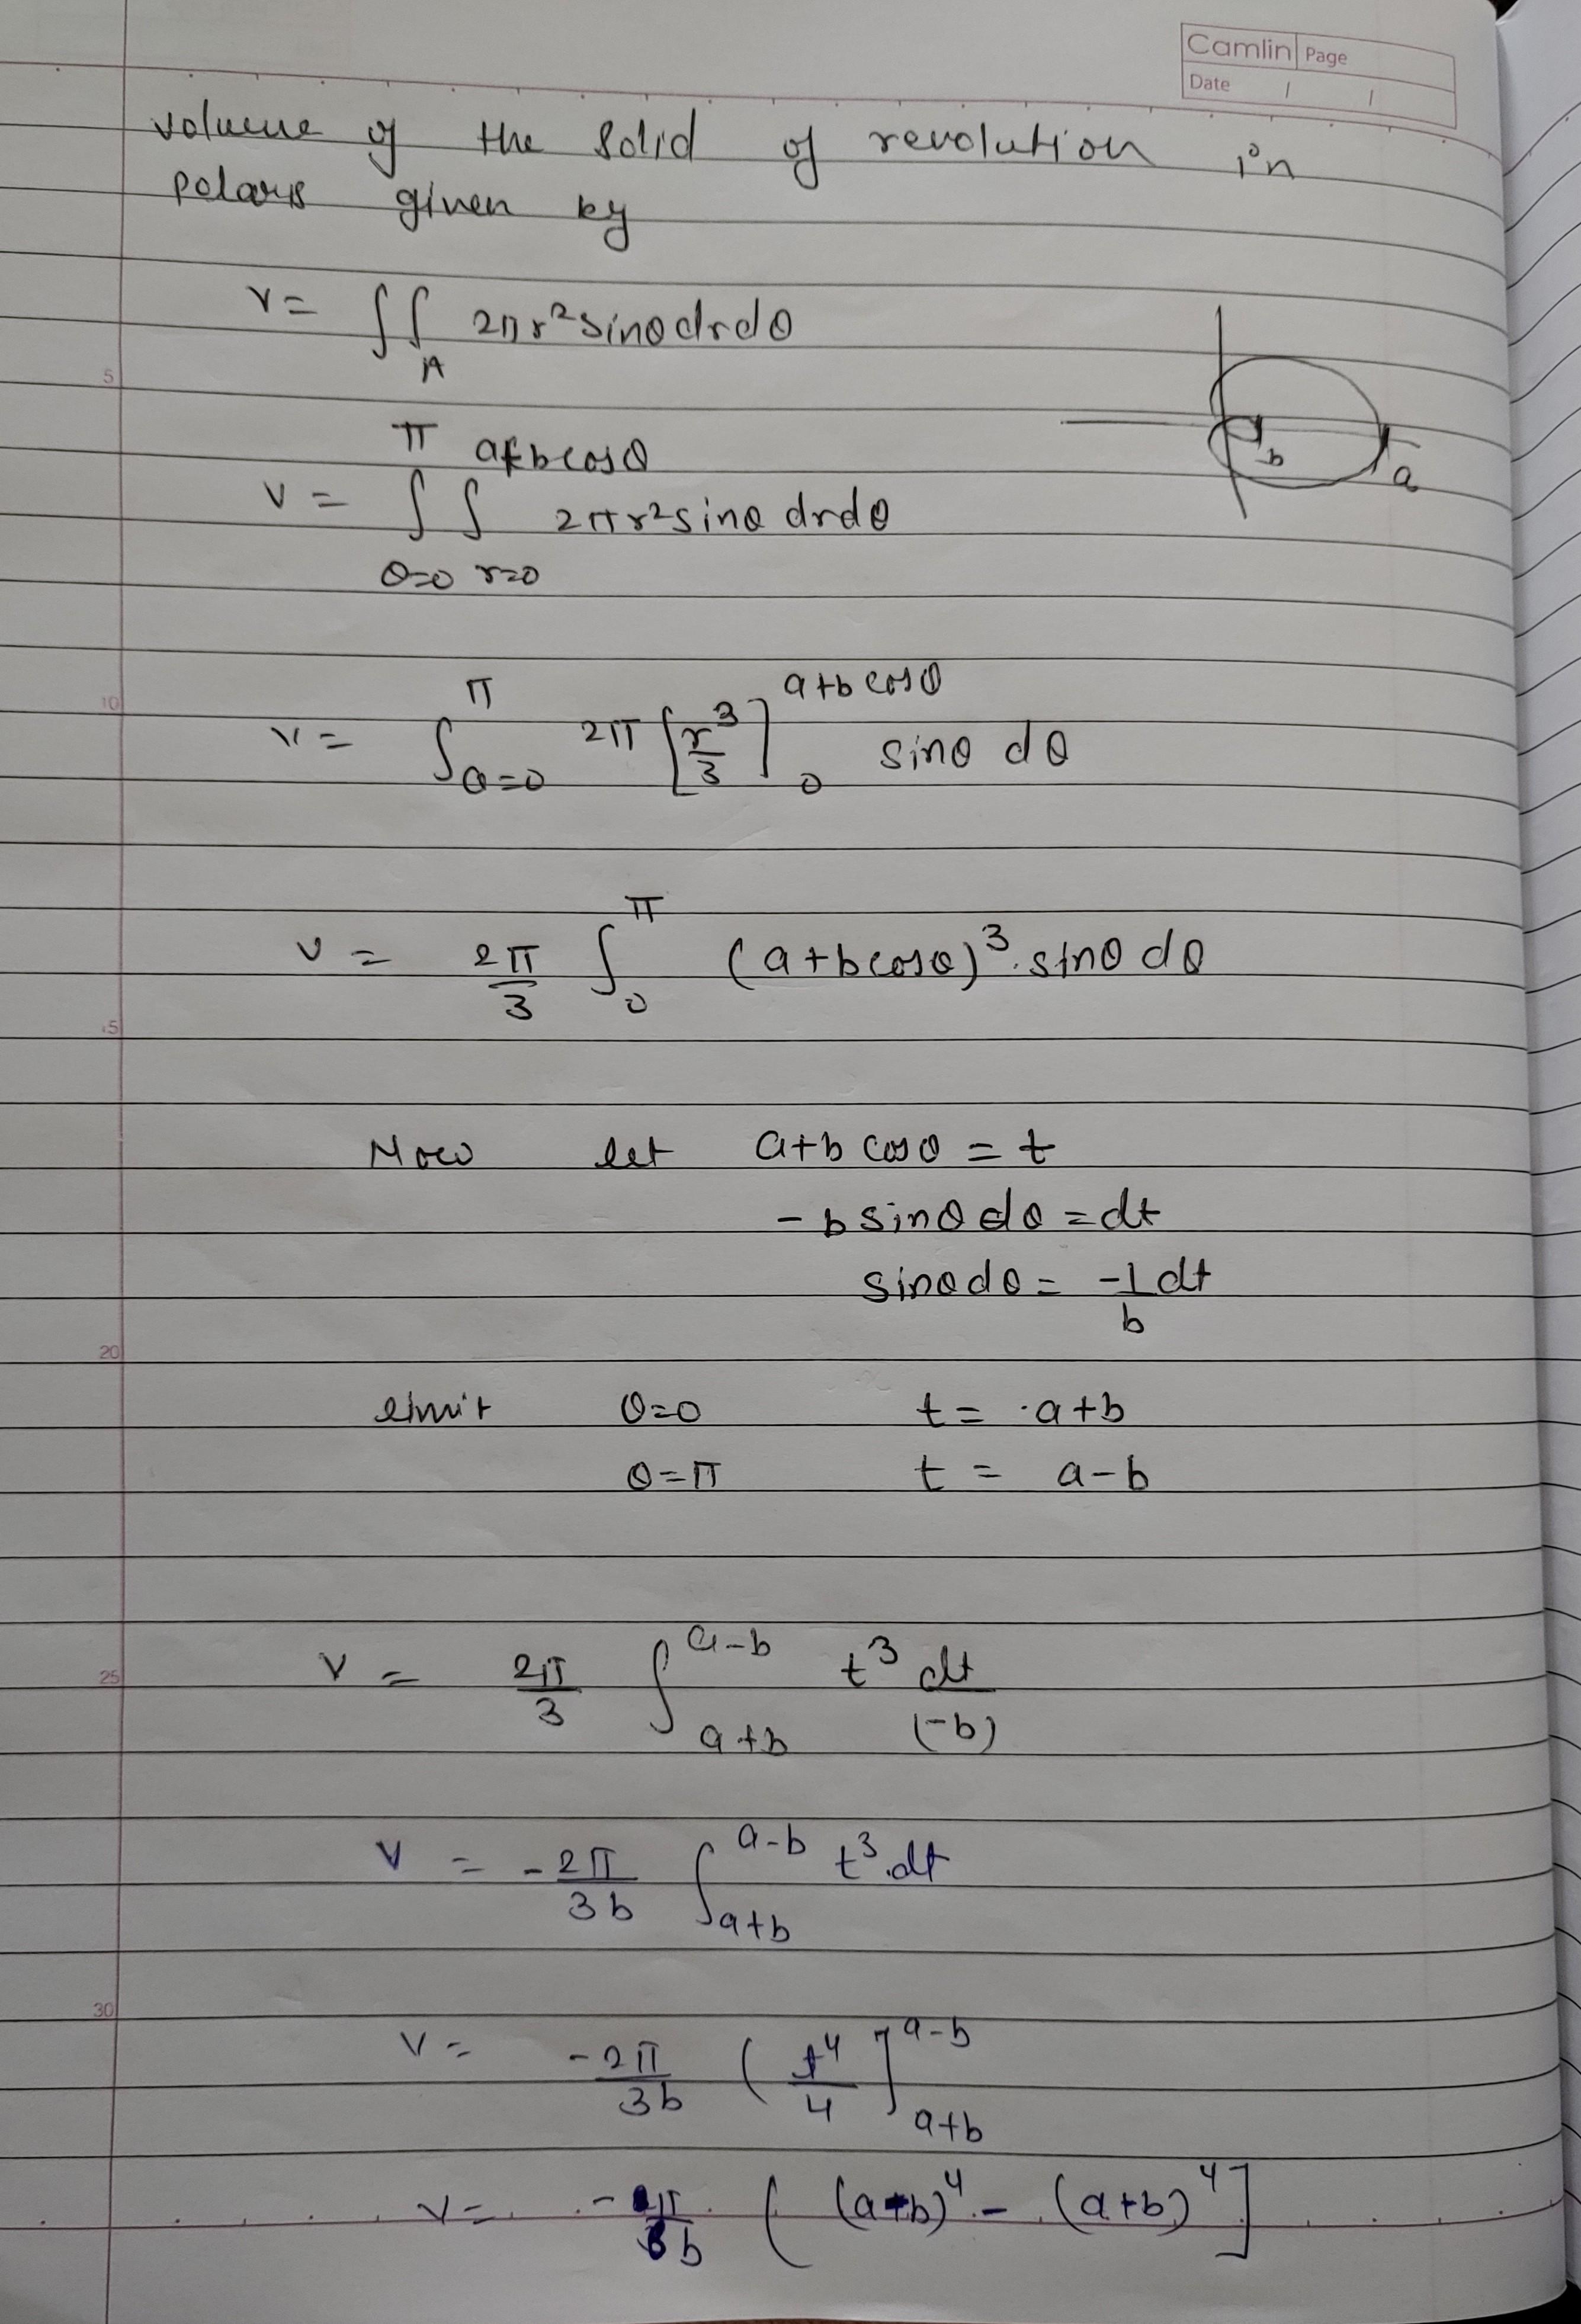 Camlin Page
Date / /
volume of the solid of revolution in
polars given by
V = ∫∫ 2πr²sinθdrdθ
A
π a+bcosθ
V = ∫ ∫ 2πr²sinθ drdθ
θ=0 r=0
b
a
V = ∫θ=0^π 2π [r³/3]₀^a+b cosθ sinθ dθ
V = 2π/3 ∫₀^π (a+bcosθ)³.sinθ dθ
Now let a+b cosθ = t
-b sinθ dθ = dt
sinθdθ = -1/b dt
limit θ=0 t = a+b
θ=π t = a-b
V = 2π/3 ∫a+b^a-b t³ dt/(-b)
V = -2π/3b ∫a+b^a-b t³.dt
V = -2π/3b (t⁴/4]a+b^a-b
V = -π/6b [(a-b)⁴ - (a+b)⁴]
5
10
15
20
25
30